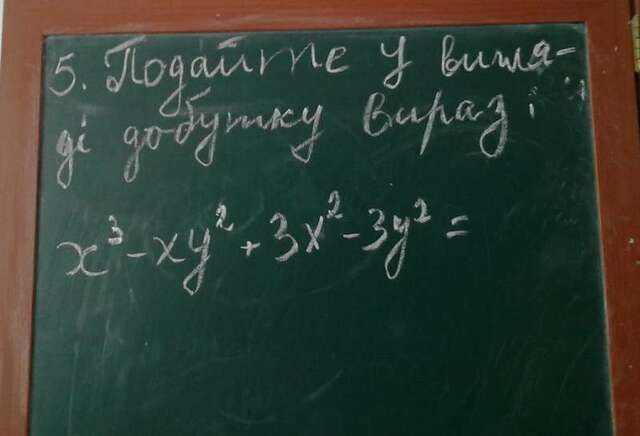 5. Подайте у вигля-
ді добутку вираз:
x³ - xy² + 3x² - 3y² =